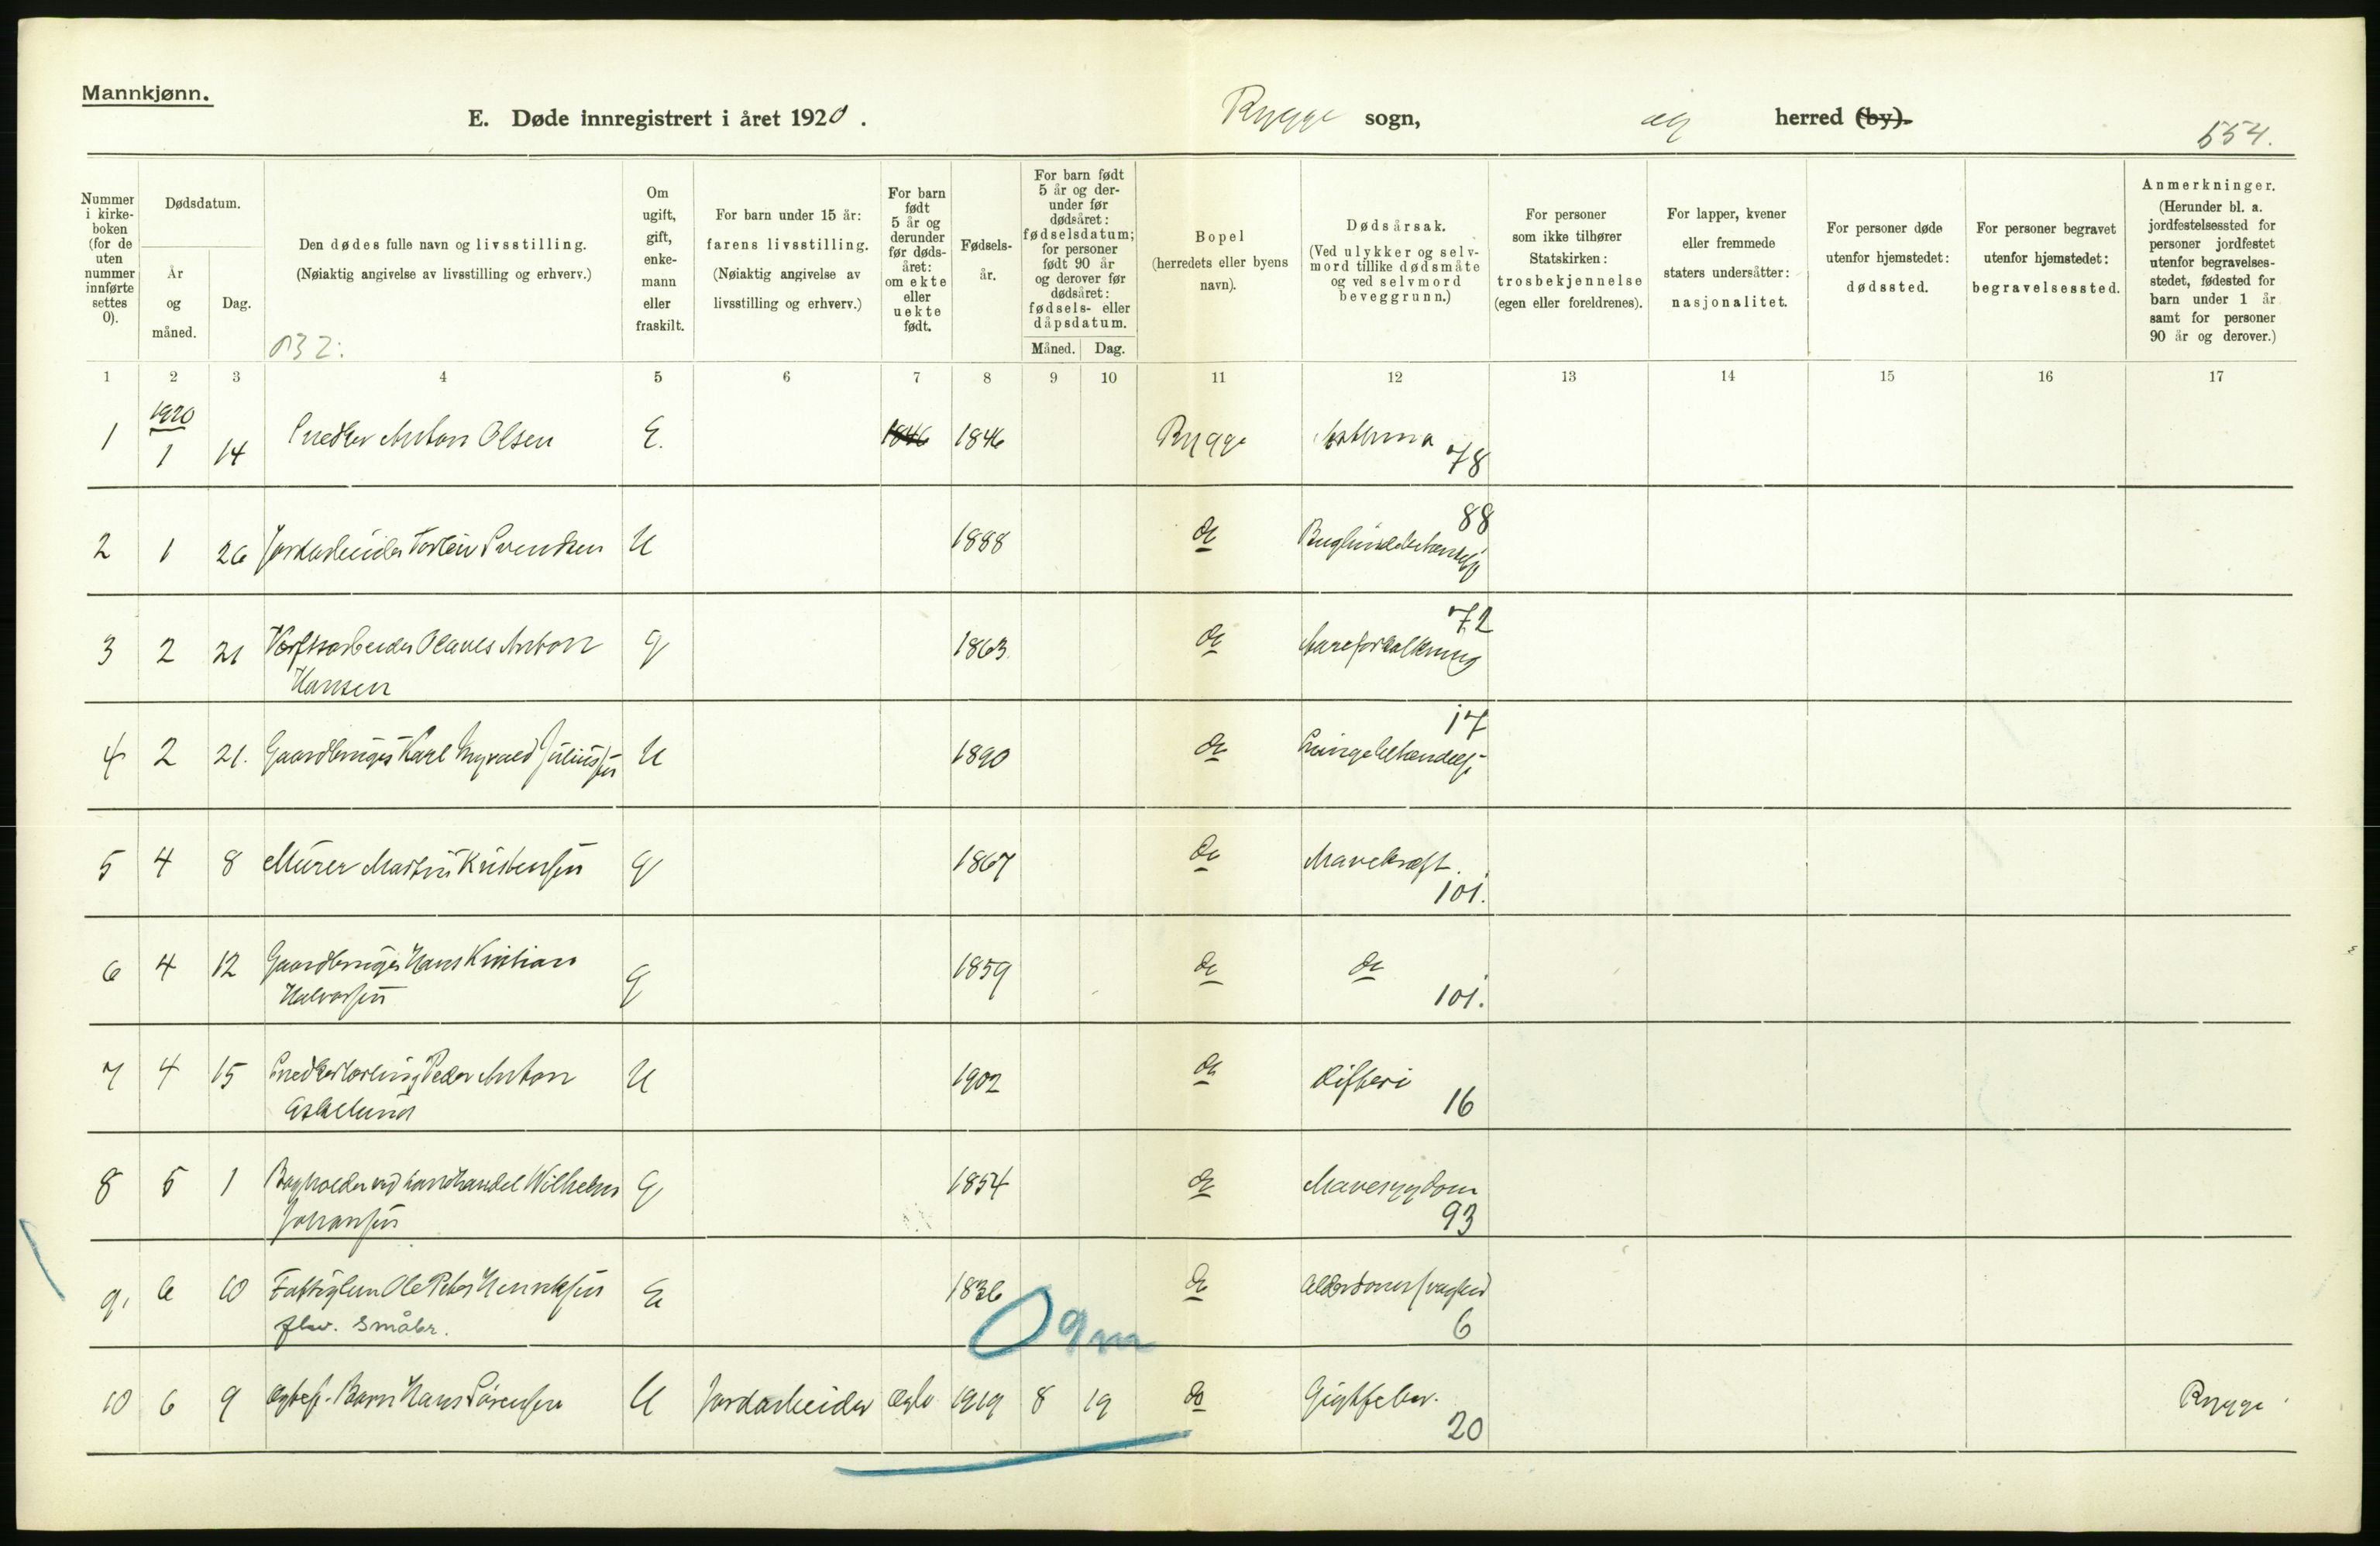 Mannkjønn.
E. Døde innregistrert i året 1920. Rygge sogn, og herred (by).
554.
Nummer i kirkeboken (for de uten nummer innførte settes 0).
Dødsdatum.
År og måned.
Dag.
Den dødes fulle navn og livsstilling.
(Nøiaktig angivelse av livsstilling og erhverv.)
Om ugift, gift, enkemann eller fraskilt.
For barn under 15 år: farens livsstilling.
(Nøiaktig angivelse av livsstilling og erhverv.)
For barn født 5 år og derunder før dødsåret: om ekte eller uekte født.
Fødselsår.
For barn født 5 år og derunder før dødsåret: fødselsdatum; for personer født 90 år og derover før dødsåret: fødsels- eller dåpsdatum.
Måned. Dag.
Bopel
(herredets eller byens navn).
Dødsårsak.
(Ved ulykker og selvmord tillike dødsmåte og ved selvmord beveggrunn.)
For personer som ikke tilhører Statskirken: trosbekjennelse (egen eller foreldrenes).
For lapper, kvener eller fremmede staters undersåtter: nasjonalitet.
For personer døde utenfor hjemstedet: dødssted.
For personer begravet utenfor hjemstedet: begravelsessted.
Anmerkninger.
(Herunder bl. a. jordfestelsessted for personer jordfestet utenfor begravelsesstedet, fødested for barn under 1 år samt for personer 90 år og derover.)
1 2 3 4 5 6 7 8 9 10 11 12 13 14 15 16 17
1920
1 1 14 Snedker Anton Olsen E. 1846 1846 Rygge Asthma 78
2 1 26 Jordarbeider Torleiv Svendsen U 1888 do 88
3 2 21 Værftsarbeider Olaves Anton Hansen g 1863 do Aareforkalkning 72
4 2 21. Gaardbruger Karl Julius U 1890 do Lungebetændelse 17
5 4 8 Murer Martin Kristensen g 1867 do Mavekræft. 101.
6 4 12 Gaardbruger Hans Kristian Halvorsen g 1859 do do 101.
7 4 15 Snedkerlærling Peder Anton U 1902 do Difteri 16
8 5 1 Bogholder ved Wilhelm Johansen g 1854 do Mavesygdom 93
9. 6 10 Fattiglem Ole Peter Henriksen E 1836 do Alderdomssvaghed
fhv. småbr. 6
0 9 m
10 6 9 Barn Hans Sørensen U Jordarbeider Ægte 1919 8 19 do Gigtfeber. 20 Rygge